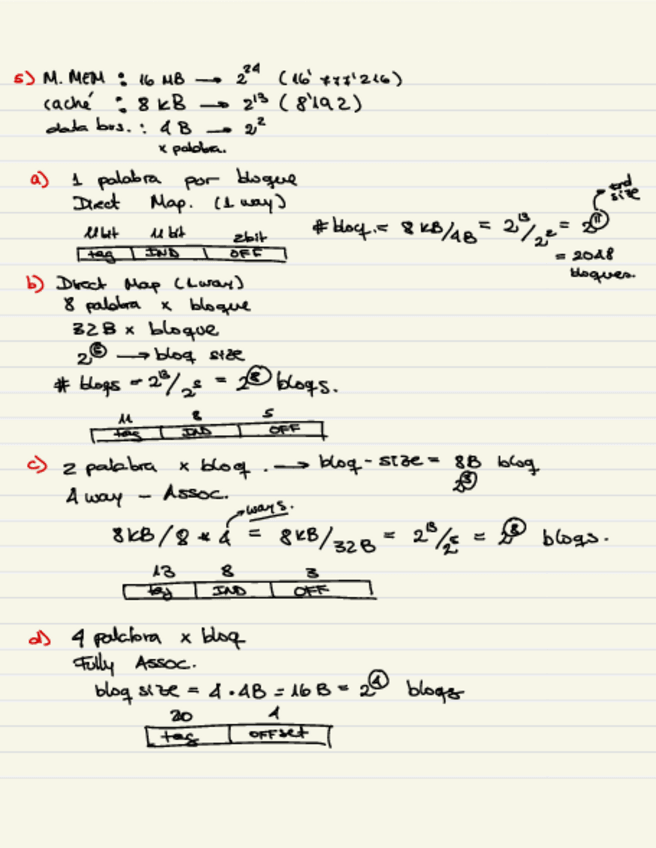 5) M. MEM : 16 MB → 2^24 (16'777'216)
caché : 8 kB → 2^13 (8'192)
data bus. : 4 B → 2^2
x palabra.
a) 1 palabra por bloque
Direct Map. (1 way)
# bloq. = 8 kB/4B = 2^13/2^2 = 2^11
size
= 2048
bloques.
11bit 11 bit 2bit
tag IND OFF
b) Direct Map (1 way)
8 palabra x bloque
32 B x bloque
2^5 → bloq size
# bloqs = 2^13/2^5 = 2^8 bloqs.
11 8 5
tag IND OFF
c) 2 palabra x bloq. → bloq-size = 8B bloq
2^3
4 way - Assoc.
ways.
8kB/8 * 4 = 8kB/32B = 2^13/2^5 = 2^8 bloqs.
13 8 3
tag IND OFF
d) 4 palabra x bloq
Fully Assoc.
bloq size = 4 · 4B = 16 B = 2^4 bloqs
20 4
tag OFFset